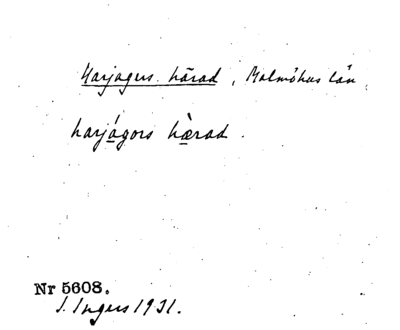 Harjagers härad, Malmöhus län
harjágors hæ̀rad.
Nr 5608.
I. Ingers 1931.